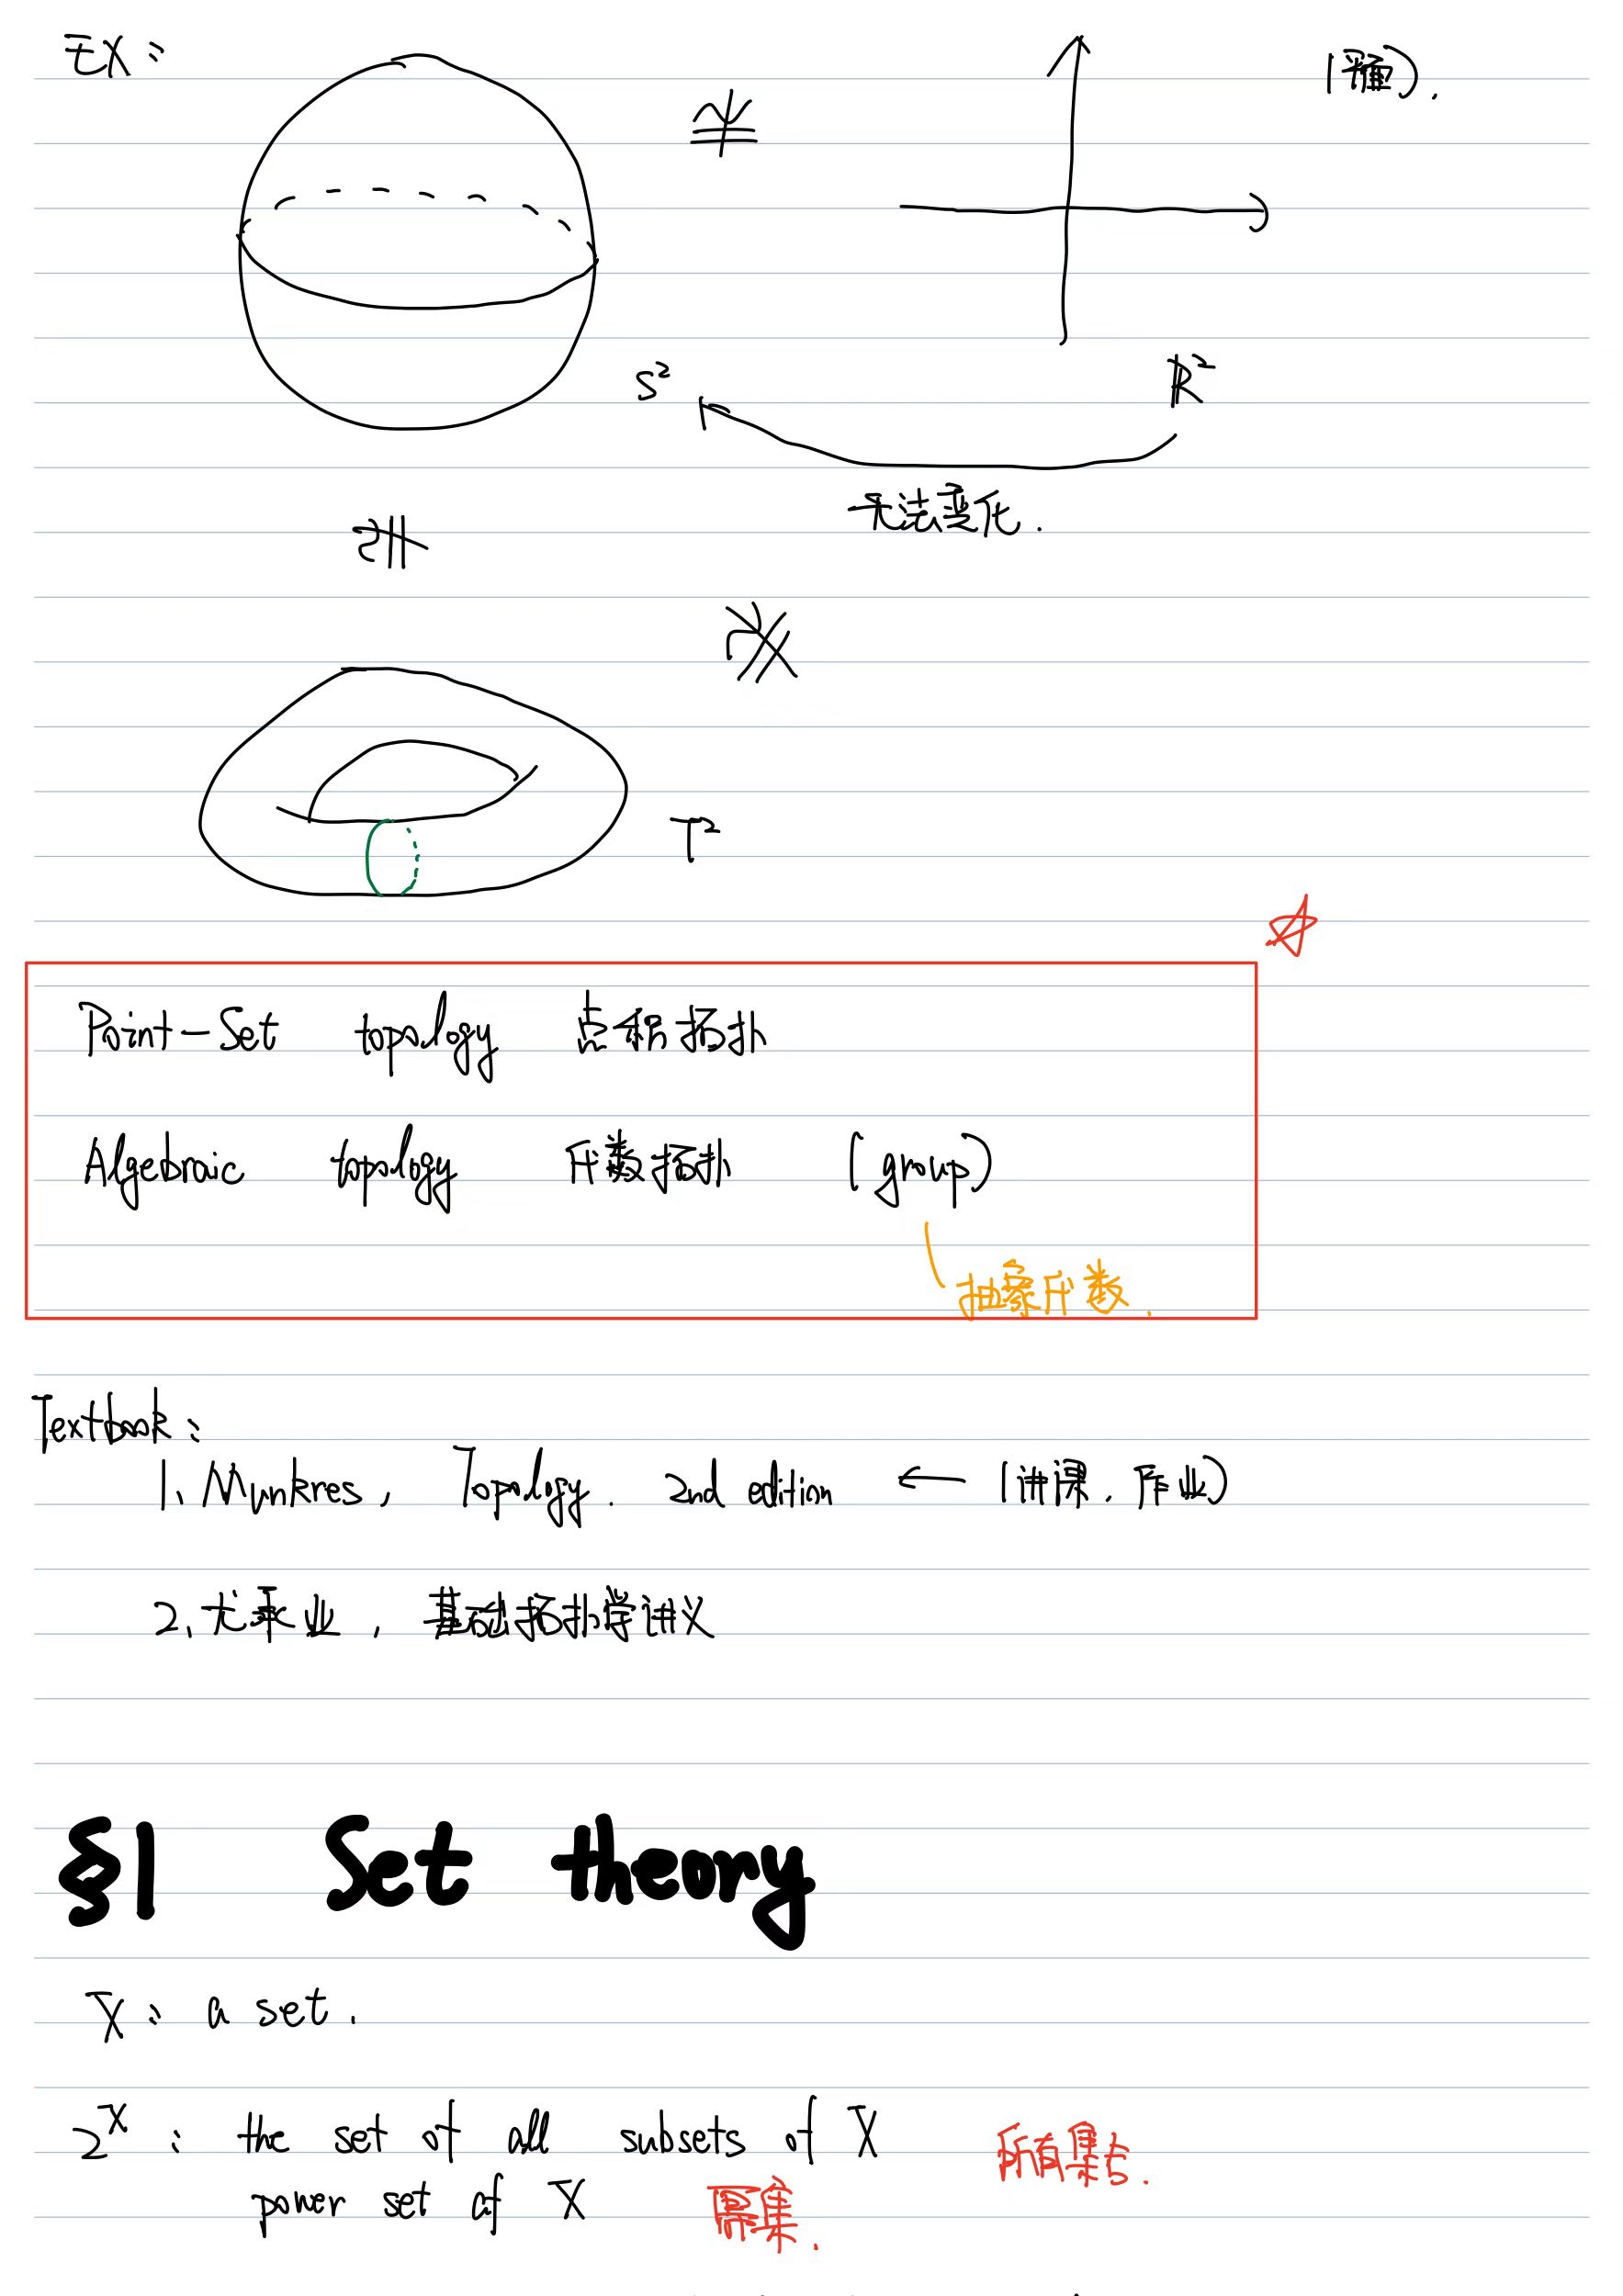 EX:
≇
(平面).
S²
R²
无法变化.
≇
≇
T²
Point-Set topology 点积拓扑
Algebraic topology 代数拓扑 (group)
抽象代数.
Textbook:
1. Munkres, Topology. 2nd edition ← (讲课. 作业)
2. 尤承业, 基础拓扑学讲义
§1 Set theory
X: a set.
2^X: the set of all subsets of X 所有集合.
power set of X 幂集.